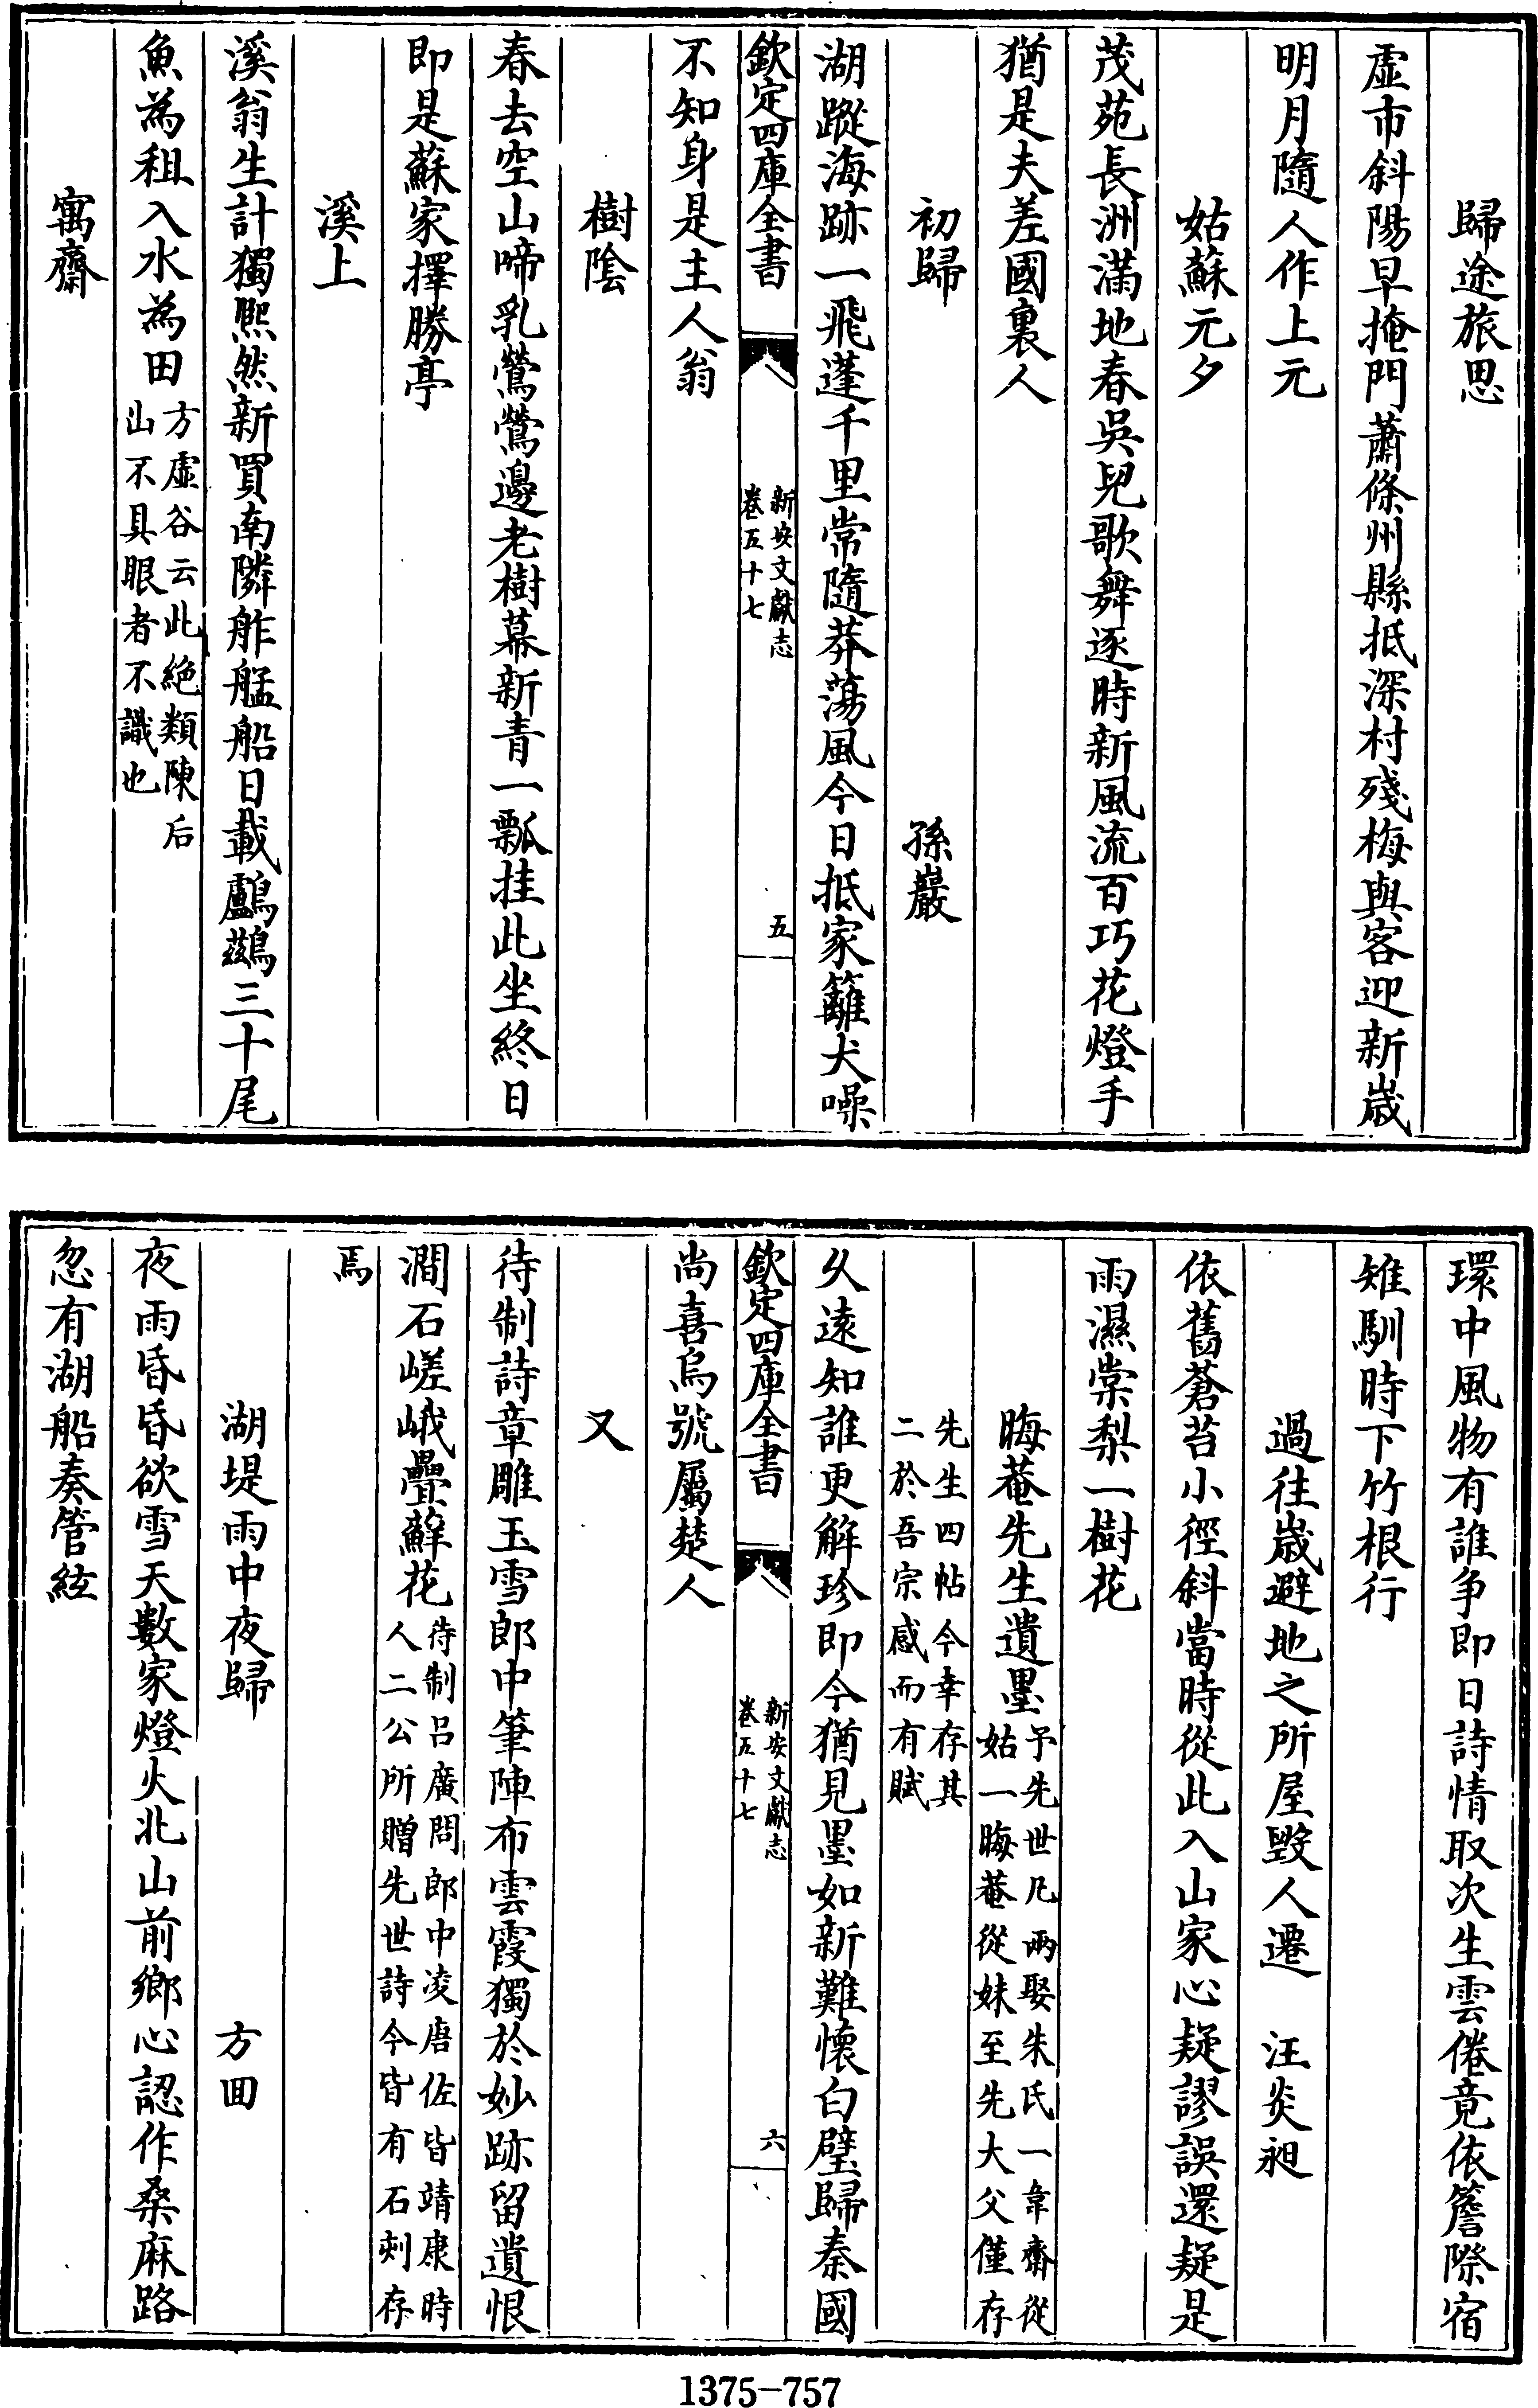 歸途旅思
虛市斜陽早掩門蕭條州縣抵深村殘梅與客迎新嵗
明月隨人作上元
姑蘇元夕
茂苑長洲滿地春吳兒歌舞逐時新風流百巧花燈手
猶是夫差國裏人
初歸　孫巖
湖蹤海跡一飛蓬千里常隨莽蕩風今日抵家籬犬噪
欽定四庫全書　新安文獻志卷五十七　五
不知身是主人翁
樹陰
春去空山啼乳鶯鶯邊老樹幕新青一瓢挂此坐終日
即是蘇家擇勝亭
溪上
溪翁生計獨熈然新買南隣舴艋船日載鸕鷀三十尾
魚為租入水為田方虛谷云此絶類陳后
山不具眼者不識也
寓齋
環中風物有誰争即日詩情取次生雲倦竟依簷際宿
雉馴時下竹根行
過往嵗避地之所屋毀人遷　汪炎昶
依舊蒼苔小徑斜當時從此入山家心疑謬誤還疑是
雨濕棠梨一樹花
晦菴先生遺墨予先世凡兩娶朱氏一韋齋從
姑一晦菴從妹至先大父僅存
先生四帖今幸存其
二於吾宗感而有賦
乆逺知誰更解珍即今猶見墨如新難懷白璧歸秦國
欽定四庫全書　新安文獻志卷五十七　六
尚喜烏號屬楚人
又
待制詩章雕玉雪郎中筆陣布雲霞獨於妙跡留遺恨
澗石嵯峨疊蘚花待制吕廣問郎中凌唐佐皆靖康時
人二公所贈先世詩今皆有石刻存
焉
湖堤雨中夜歸　方回
夜雨昏昏欲雪天數家燈火北山前鄉心認作桑麻路
忽有湖船奏管絃
1375-757